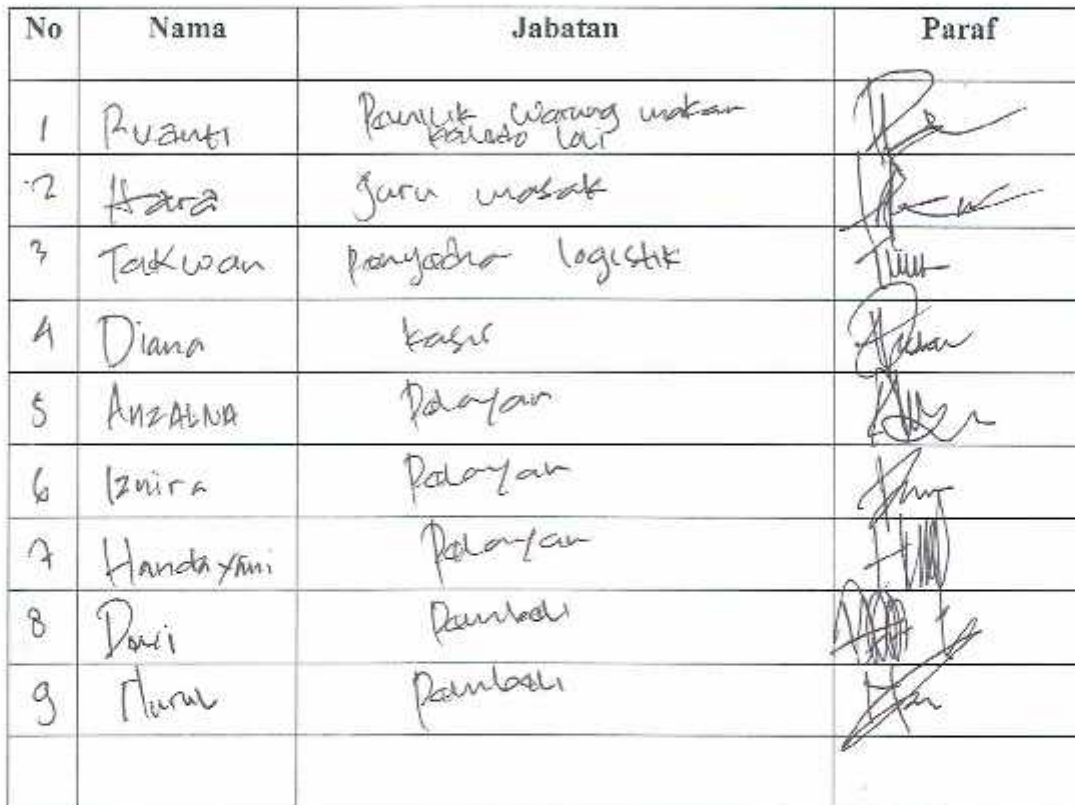 No Nama Jabatan Paraf
1 Rvanti Pemilik warung makan
kaledo loli
2 Hara guru masak
3 Takwan penyedia logistik
4 Diana kasir
5 ANZALNA Pelayan
6 Iznira Pelayan
7 Handayani Pelayan
8 Dewi Pembeli
9 Nurul Pembeli